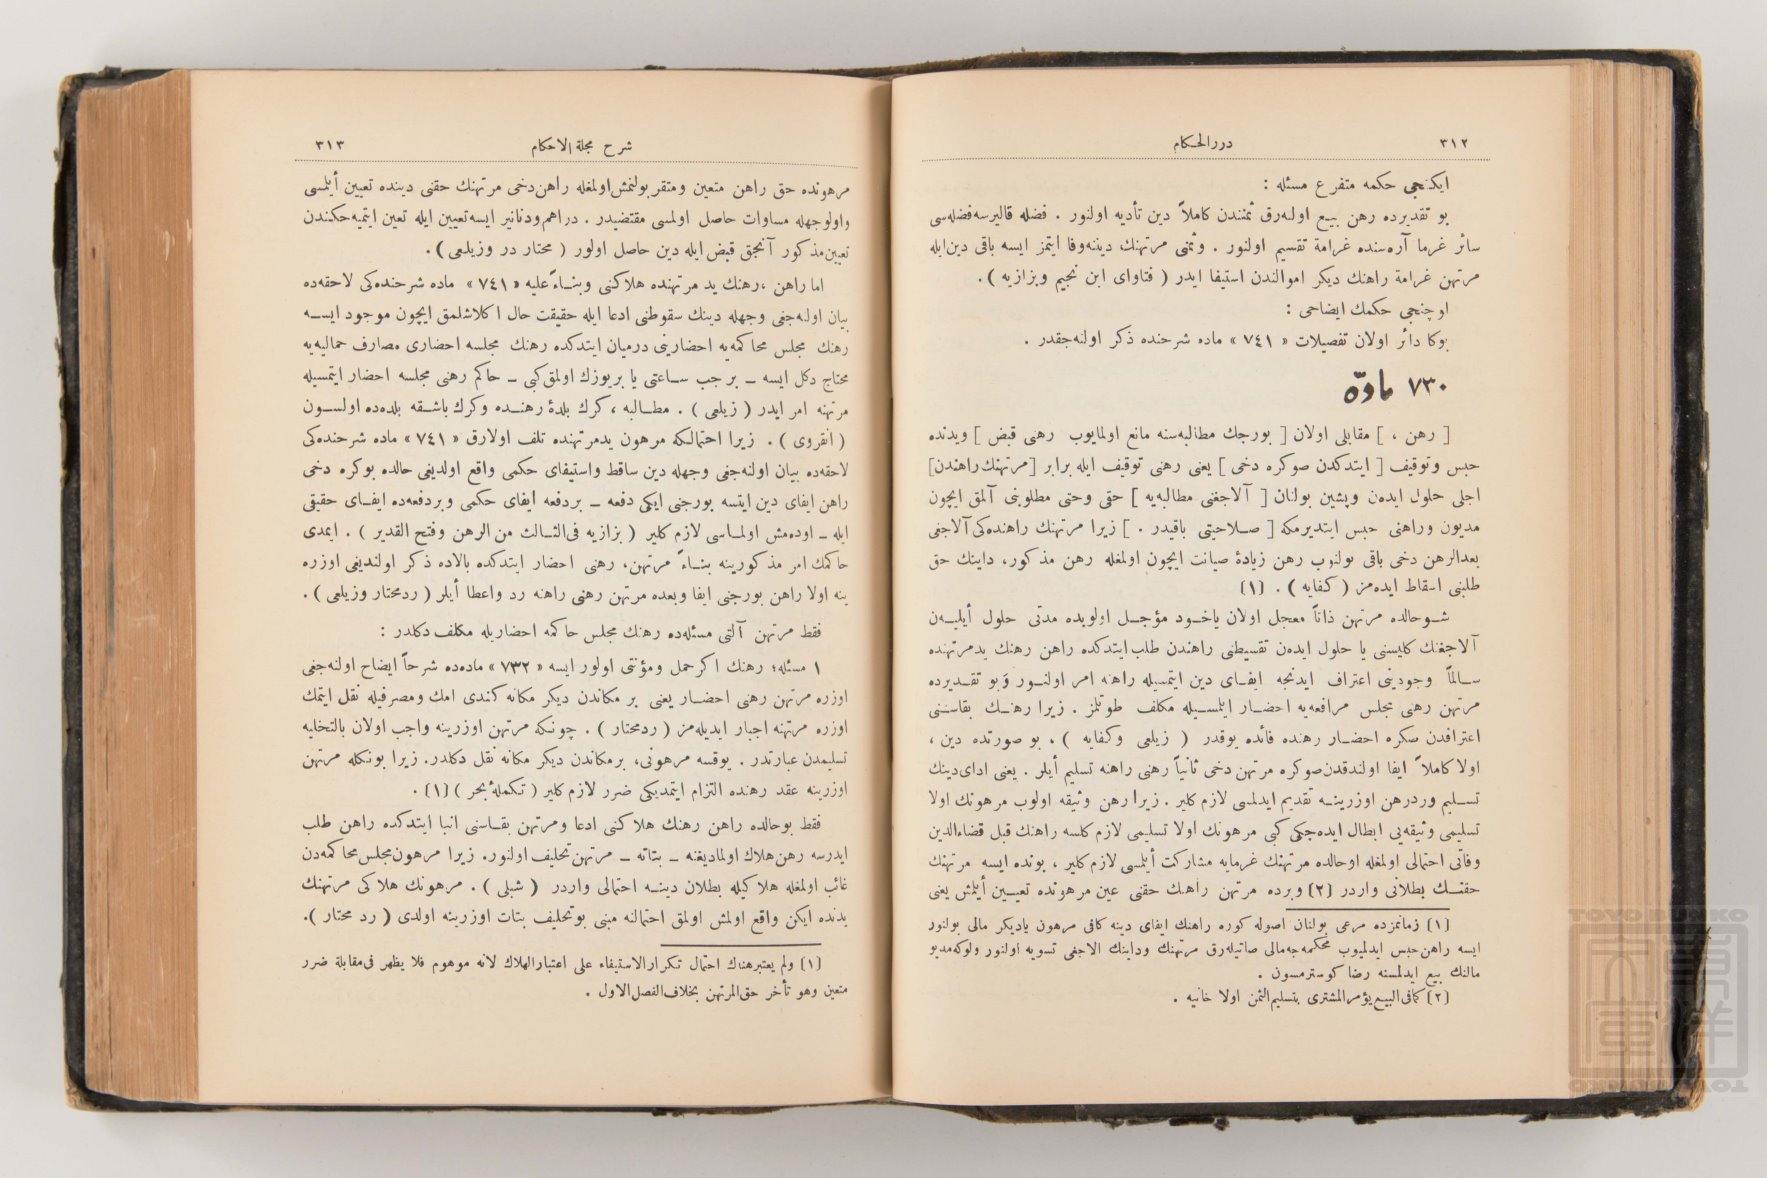 ٣١٢
دررالحكام
ايكنجى حكمه متفرع مسئله :
بو تقديرده رهن بيع اولنه‌رق ثمنندن كاملاً دين تأديه اولنور . فضله قاليرسه فضله‌سى
سائر غرما آره‌سنده غرامة تقسيم اولنور . وثمنى مرتهنك ديننه‌وفا ايتمز ايسه باقى دين‌ايله
مرتهن غرامة راهنك ديكر اموالندن استيفا ايدر ( فتاواى ابن نجيم وبزازيه ) .
اوچنجى حكمك ايضاحى :
بوكا دأئر اولان تفصيلات « ٧٤١ » ماده شرحنده ذكر اولنه‌جقدر .
٧٣٠ مادّه
[ رهن ، ] مقابلى اولان [ بورجك مطالبه‌سنه مانع اولمايوب رهنى قبض ] ويدنده
حبس وتوقيف [ ايتدكدن صوكره دخى ] يعنى رهنى توقيف ايله برابر [مرتهنك‌راهندن]
اجلى حلول ايده‌ن وپشين بولنان [ آلاجغنى مطالبه‌يه ] حقى وحتى مطلوبنى آلمق ايچون
مديون وراهنى حبس ايتديرمكه [ صــلاحيتى باقيدر . ] زيرا مرتهنك راهنده‌كى آلاجغى
بعدالرهن دخى باقى بولنوب رهن زيادۀ صيانت ايچون اولمغله رهن مذكور، داينك حق
طلبنى اسقاط ايده‌مز ( كفايه ) . (١)
شــوحالده مرتهن ذاتاً معجل اولان ياخــود مؤجــل اولوبده مدتى حلول أيليــه‌ن
آلاجغنك كليسنى يا حلول ايده‌ن تقسيطنى راهندن طلب‌ايتدكده راهن رهنك يدمرتهنده
ســالماً وجودينى اعتراف ايدنجه ايفـاى دين ايتمسيله راهنه امر اولنــور وبو تقــديرده
مرتهن رهنى مجلس مرافعه‌يه احضــار ايلمســيله مكلف طوتلمز . زيرا رهنــك بقاسنى
اعترافدن صكره احضــار رهنده فائده يوقدر ( زيلعى وكفايه ) . بو صورتده دين ،
اولا كاملاً ايفا اولندقدن‌صوكره مرتهن دخى ثانياً رهنى راهنه تسليم أيلر . يعنى اداى‌دينك
تســليم وردرهن اوزرينــه تقديم ايدلمسى لازم كلير . زيرا رهن وثيقه اولوب مرهونك اولا
تسليمى وثيقه‌يى ابطال ايده‌جكى كبى مرهونك اولا تسليمى لازم كلسه راهنك قبل قضاءالدين
وفاتى احتمالى اولمغله اوحالده مرتهنك غرمايه مشاركت أيلمسى لازم كلير ، بونده ايسه مرتهنك
حقنــك بطلانى واردر (٢) وبرده مرتهن راهنك حقنى عين مرهونده تعيــين أيلمش يعنى
(١) زمانمزده مرعى بولنان اصوله كوره راهنك ايفاى دينه كافى مرهون ياديكر مالى بولنور
ايسه راهن‌حبس ايدلميوب محكمه‌جه‌مالى صاتيله‌رق مرتهنك وداينك الاجغى تسويه اولنور ولوكه‌مديو
مالنك بيع ايدلمسنه رضا كوسترمسون .
(٢) كمافى‌البيع‌يؤمرالمشترى بتسليم‌الثمن اولا خانيه .
شرح مجلة الاحكام
٣١٣
مرهونده حق راهن متعين ومتقرر بولنمش‌اولمغله راهن‌دخى مرتهنك حقنى دينده تعيين أيلمسى
واولوجهله مساوات حاصل اولمسى مقتضيدر . دراهم‌ودنانير ايسه‌تعيين ايله تعين ايتميه‌جكندن
تعيين‌مذكور آنجق قبض‌ايله دين حاصل اولور ( مختار در وزيلعى ) .
اما راهن ،رهنك يد مرتهنده هلاكنى وبنــاءً عليه « ٧٤١ » ماده شرحنده‌كى لاحقه‌ده
بيان اولنه‌جغى وجهله دينك سقوطنى ادعا ايله حقيقت حال اكلاشلمق ايچون موجود ايســه
رهنك مجلس محاكمه‌يه احضارينى درميان ايتدكده رهنك مجلسه احضارى مصارف حماليه‌يه
محتاج دكل ايسه ــ بر جب ســاعتى يا بريوزك اولمق‌كبى ــ حاكم رهنى مجلسه احضار ايتمسيله
مرتهنه امر ايدر ( زيلعى ) . مطــالبه ، كرك بلدۀ رهنــده وكرك باشــقه بلده‌ده اولســون
( انقروى ) . زيرا احتمالكه مرهون يدمرتهنده تلف اولارق « ٧٤١ » ماده شرحنده‌كى
لاحقه‌ده بيان اولنه‌جغى وجهله دين ساقط واستيفاى حكمى واقع اولديغى حالده بوكره دخى
راهن ايفاى دين ايتسه بورجنى ايكى دفعه ــ بردفعه ايفاى حكمى وبردفعه‌ده ايفــاى حقيقى
ايله ــ اوده‌مش اولمــاسى لازم كلير ( بزازيه فى‌الثــالث من الرهن وفتح القدير ) . ايمدى
حاكمك امر مذكورينه بنــاءً مرتهن، رهنى احضار ايتدكده بالاده ذكر اولنديغى اوزره
ينه اولا راهن بورجنى ايفا وبعده مرتهن رهنى راهنه رد واعطا أيلر ( ردمختار وزيلعى ) .
فقط مرتهن آلتى مسئله‌ده رهنك مجلس حاكمه احضاريله مكلف دكلدر :
١ مسئله؛ رهنك اكرحمل ومؤنتى اولور ايسه « ٧٣٢ » ماده‌ده شرحاً ايضاح اولنه‌جغى
اوزره مرتهن رهنى احضــار يعنى بر مكاندن ديكر مكانه كندى امك ومصرفيله نقل ايتمك
اوزره مرتهنه اجبار ايديله‌مز ( ردمختار ) . چونكه مرتهن اوزرينه واجب اولان بالتخليه
تسليمدن عبارتدر . يوقسه مرهونى، برمكاندن ديكر مكانه نقل دكلدر. زيرا بونكله مرتهن
اوزرينه عقد رهنده التزام ايتمديكى ضرر لازم كلير ( تكملۀ بحر ) (١) .
فقط بوحالده راهن رهنك هلاكنى ادعا ومرتهن بقــاسنى انبا ايتدكده راهن طلب
ايدرسه رهن‌هلاك اولماديغنه ــ بتاته ــ مرتهن‌تحليف اولنور. زيرا مرهون‌مجلس‌محاكمه‌دن
غائب اولمغله هلاكيله بطلان دينــه احتمالى واردر ( شبلى ) . مرهونك هلاكى مرتهنك
يدنده ايكن واقع اولمش اولمق احتمالنه مبنى بوتحليف بتات اوزرينه اولدى ( رد مختار ).
(١) ولم يعتبرهناك احتمال تكرارالاستيفاء على اعتبارالهلاك لانه موهوم فلا يظهر فى‌مقابلة ضرر
متعين وهو تأخر حق‌المرتهن بخلاف‌الفصل‌الاول .
TOYO BUNKO